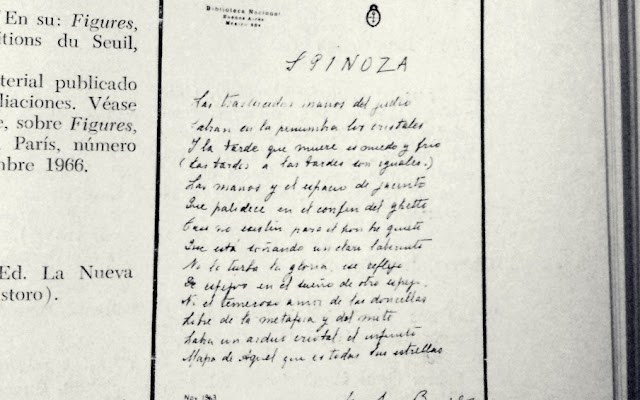 En su: Figures,
itions du Seuil,
terial publicado
liaciones. Véase
e, sobre Figures,
París, número
mbre 1966.
Ed. La Nueva
storo).
Biblioteca Nacional
Buenos Aires
México 564
SPINOZA
Las traslúcidas manos del judío
Labran en la penumbra los cristales
Y la tarde que muere es miedo y frío
(Las tardes a las tardes son iguales.)
Las manos y el espacio de jacinto
Que palidece en el confín del ghetto
Casi no existen para el hombre quieto
Que está soñando un claro laberinto
No lo turba la gloria, ese reflejo
De espejos en el sueño de otro espejo,
Ni el temeroso amor de las doncellas
Libre de la metáfora y del mito
Labra un arduo cristal: el infinito
Mapa de Aquel que es todas Sus estrellas